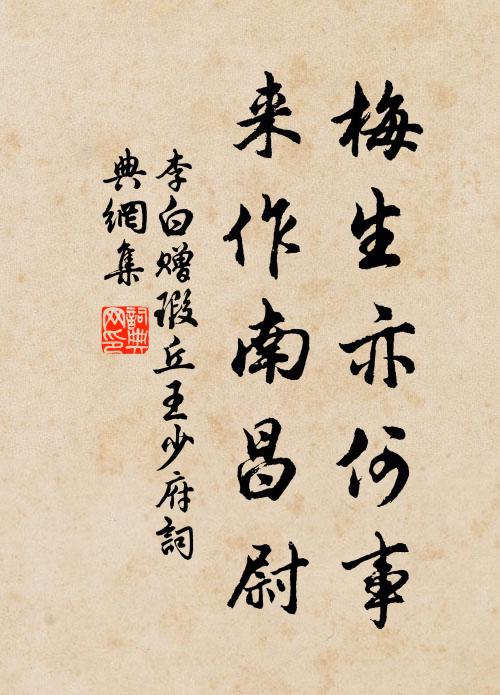 梅生亦何事
来作南昌尉
李白赠瑕丘王少府詞
典網集
詞典
网印